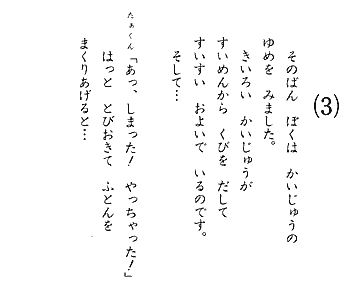 (3)
そのばん ぼくは かいじゅうの
ゆめを みました。
きいろい かいじゅうが
すいめんから くびを だして
すいすい およいで いるのです。
そして…
たぁくん「あっ、しまった! やっちゃった!」
はっと とびおきて ふとんを
まくりあげると…